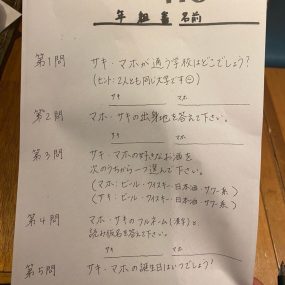 年 組 番 名前
第1問 サキ・マホが通う学校はどこでしょう?
(ヒント:2人とも同じ大学です☺)
サキ マホ
第2問 マホ・サキの出身地を答えて下さい。
サキ マホ
第3問 サキ・マホの好きなお酒を
次のうちから一つ選んで下さい。
(マホ:ビール・ウイスキー・日本酒・サワー系)
(サキ:ビール・ウイスキー・日本酒・サワー系)
第4問 マホ・サキのフルネーム(漢字)と
読み仮名を答えて下さい。
サキ マホ
第5問 サキ・マホの誕生日はいつでしょう?